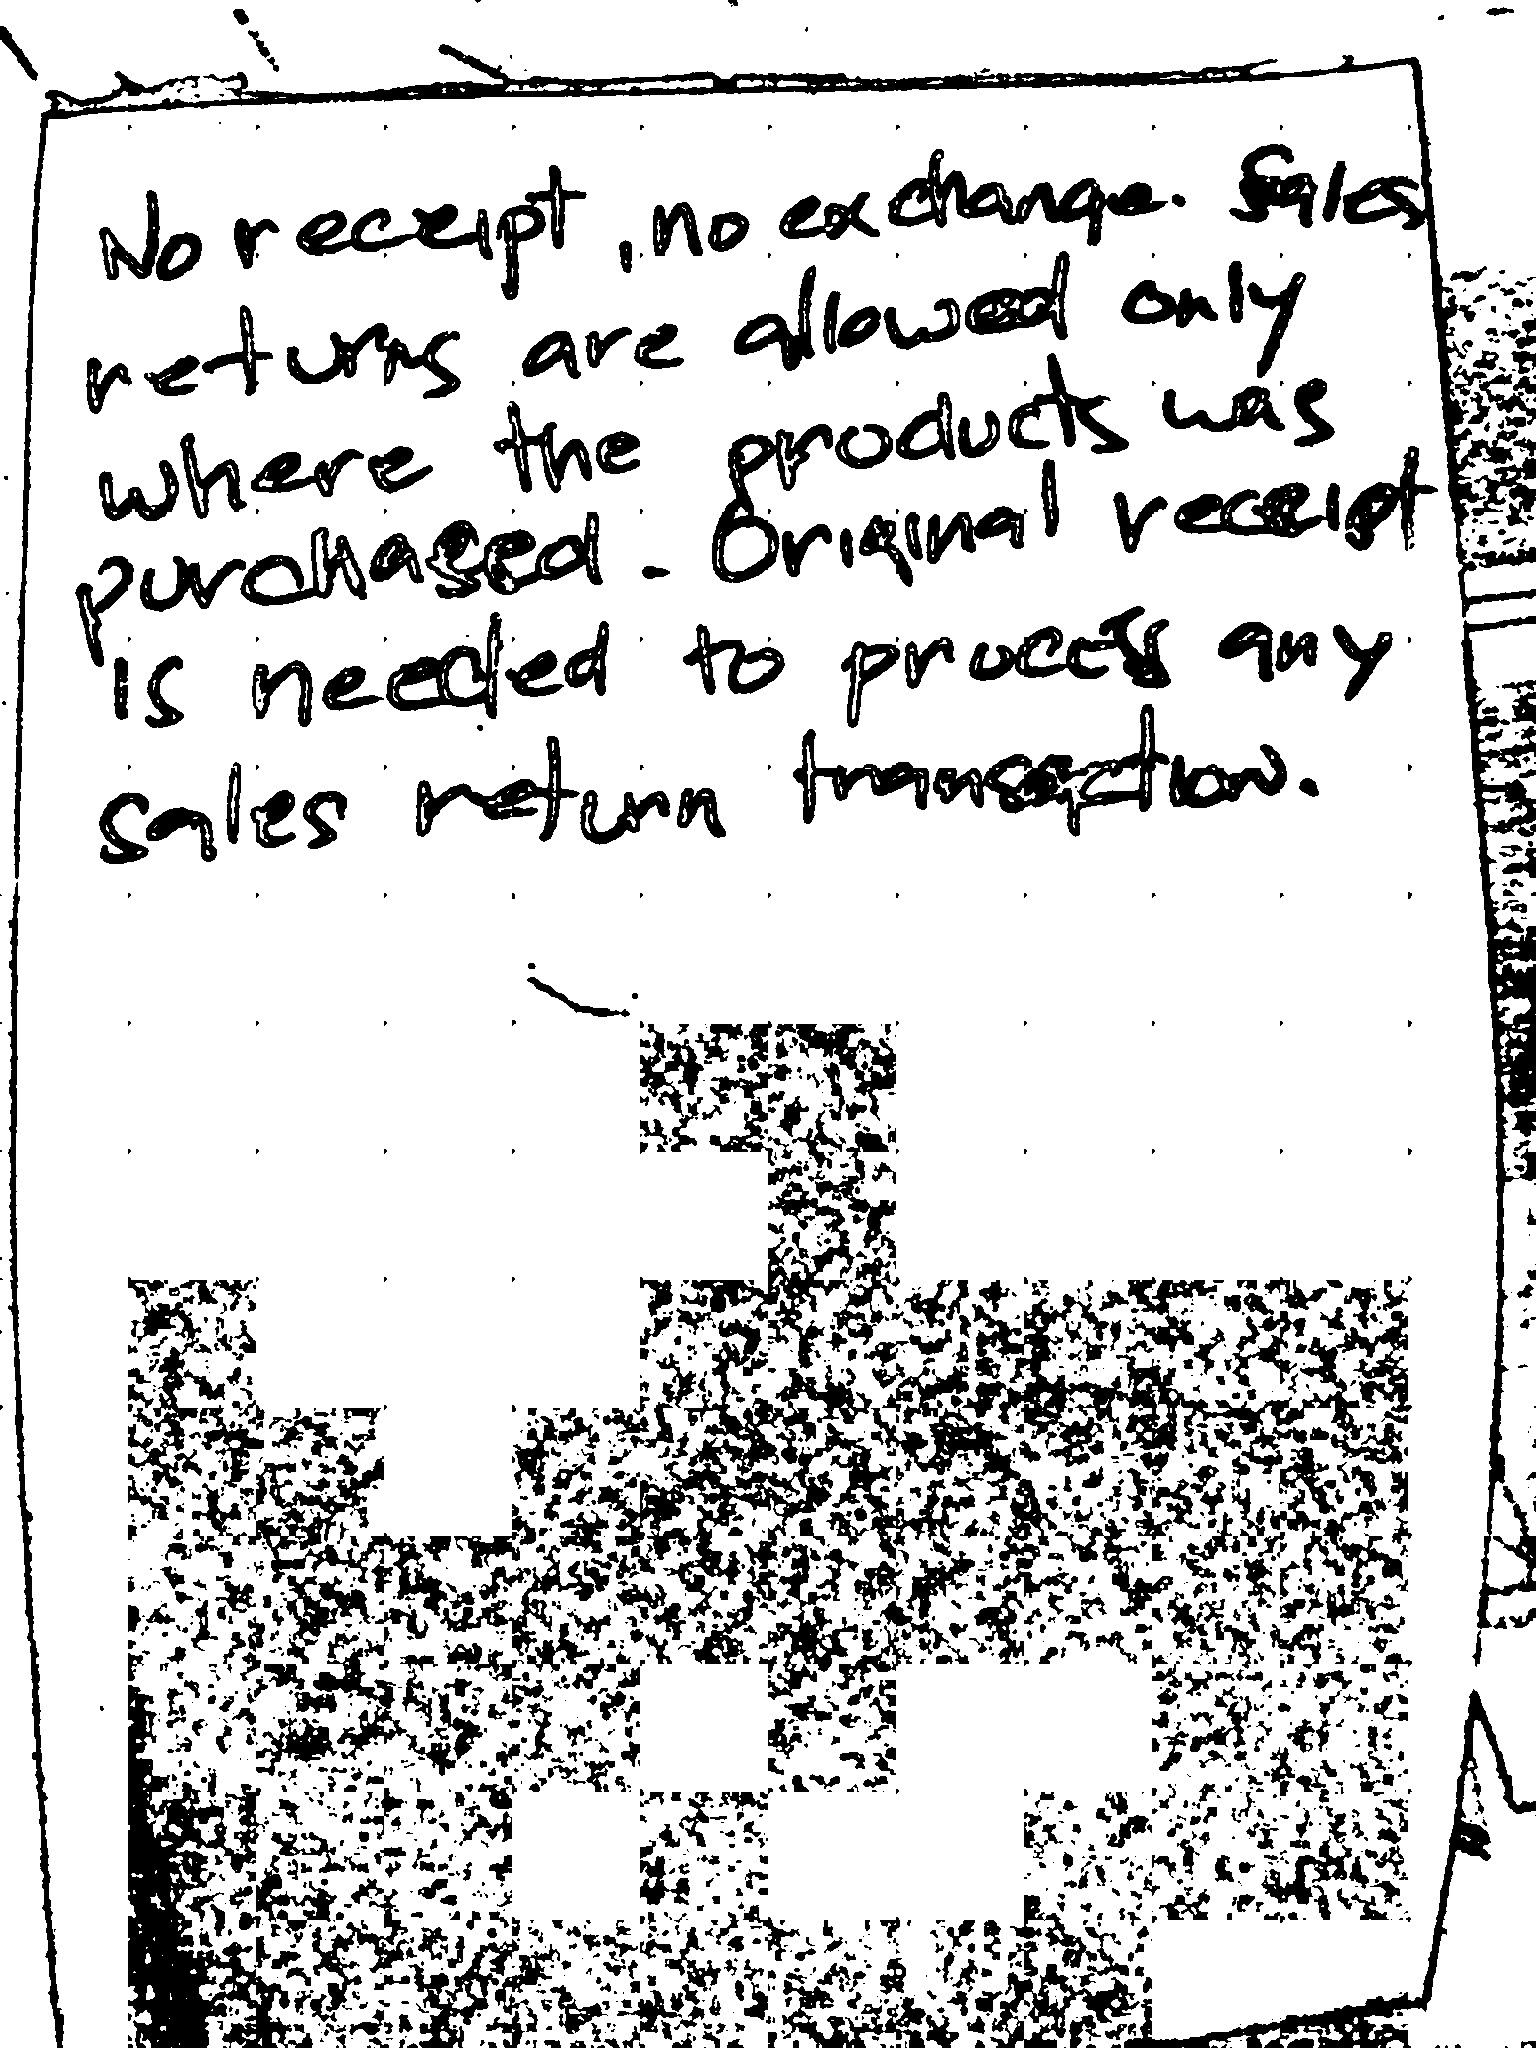 No receipt, no exchange. Sales
returns are allowed only
where the products was
purchased. Original receipt
is needed to process any
sales return transaction.